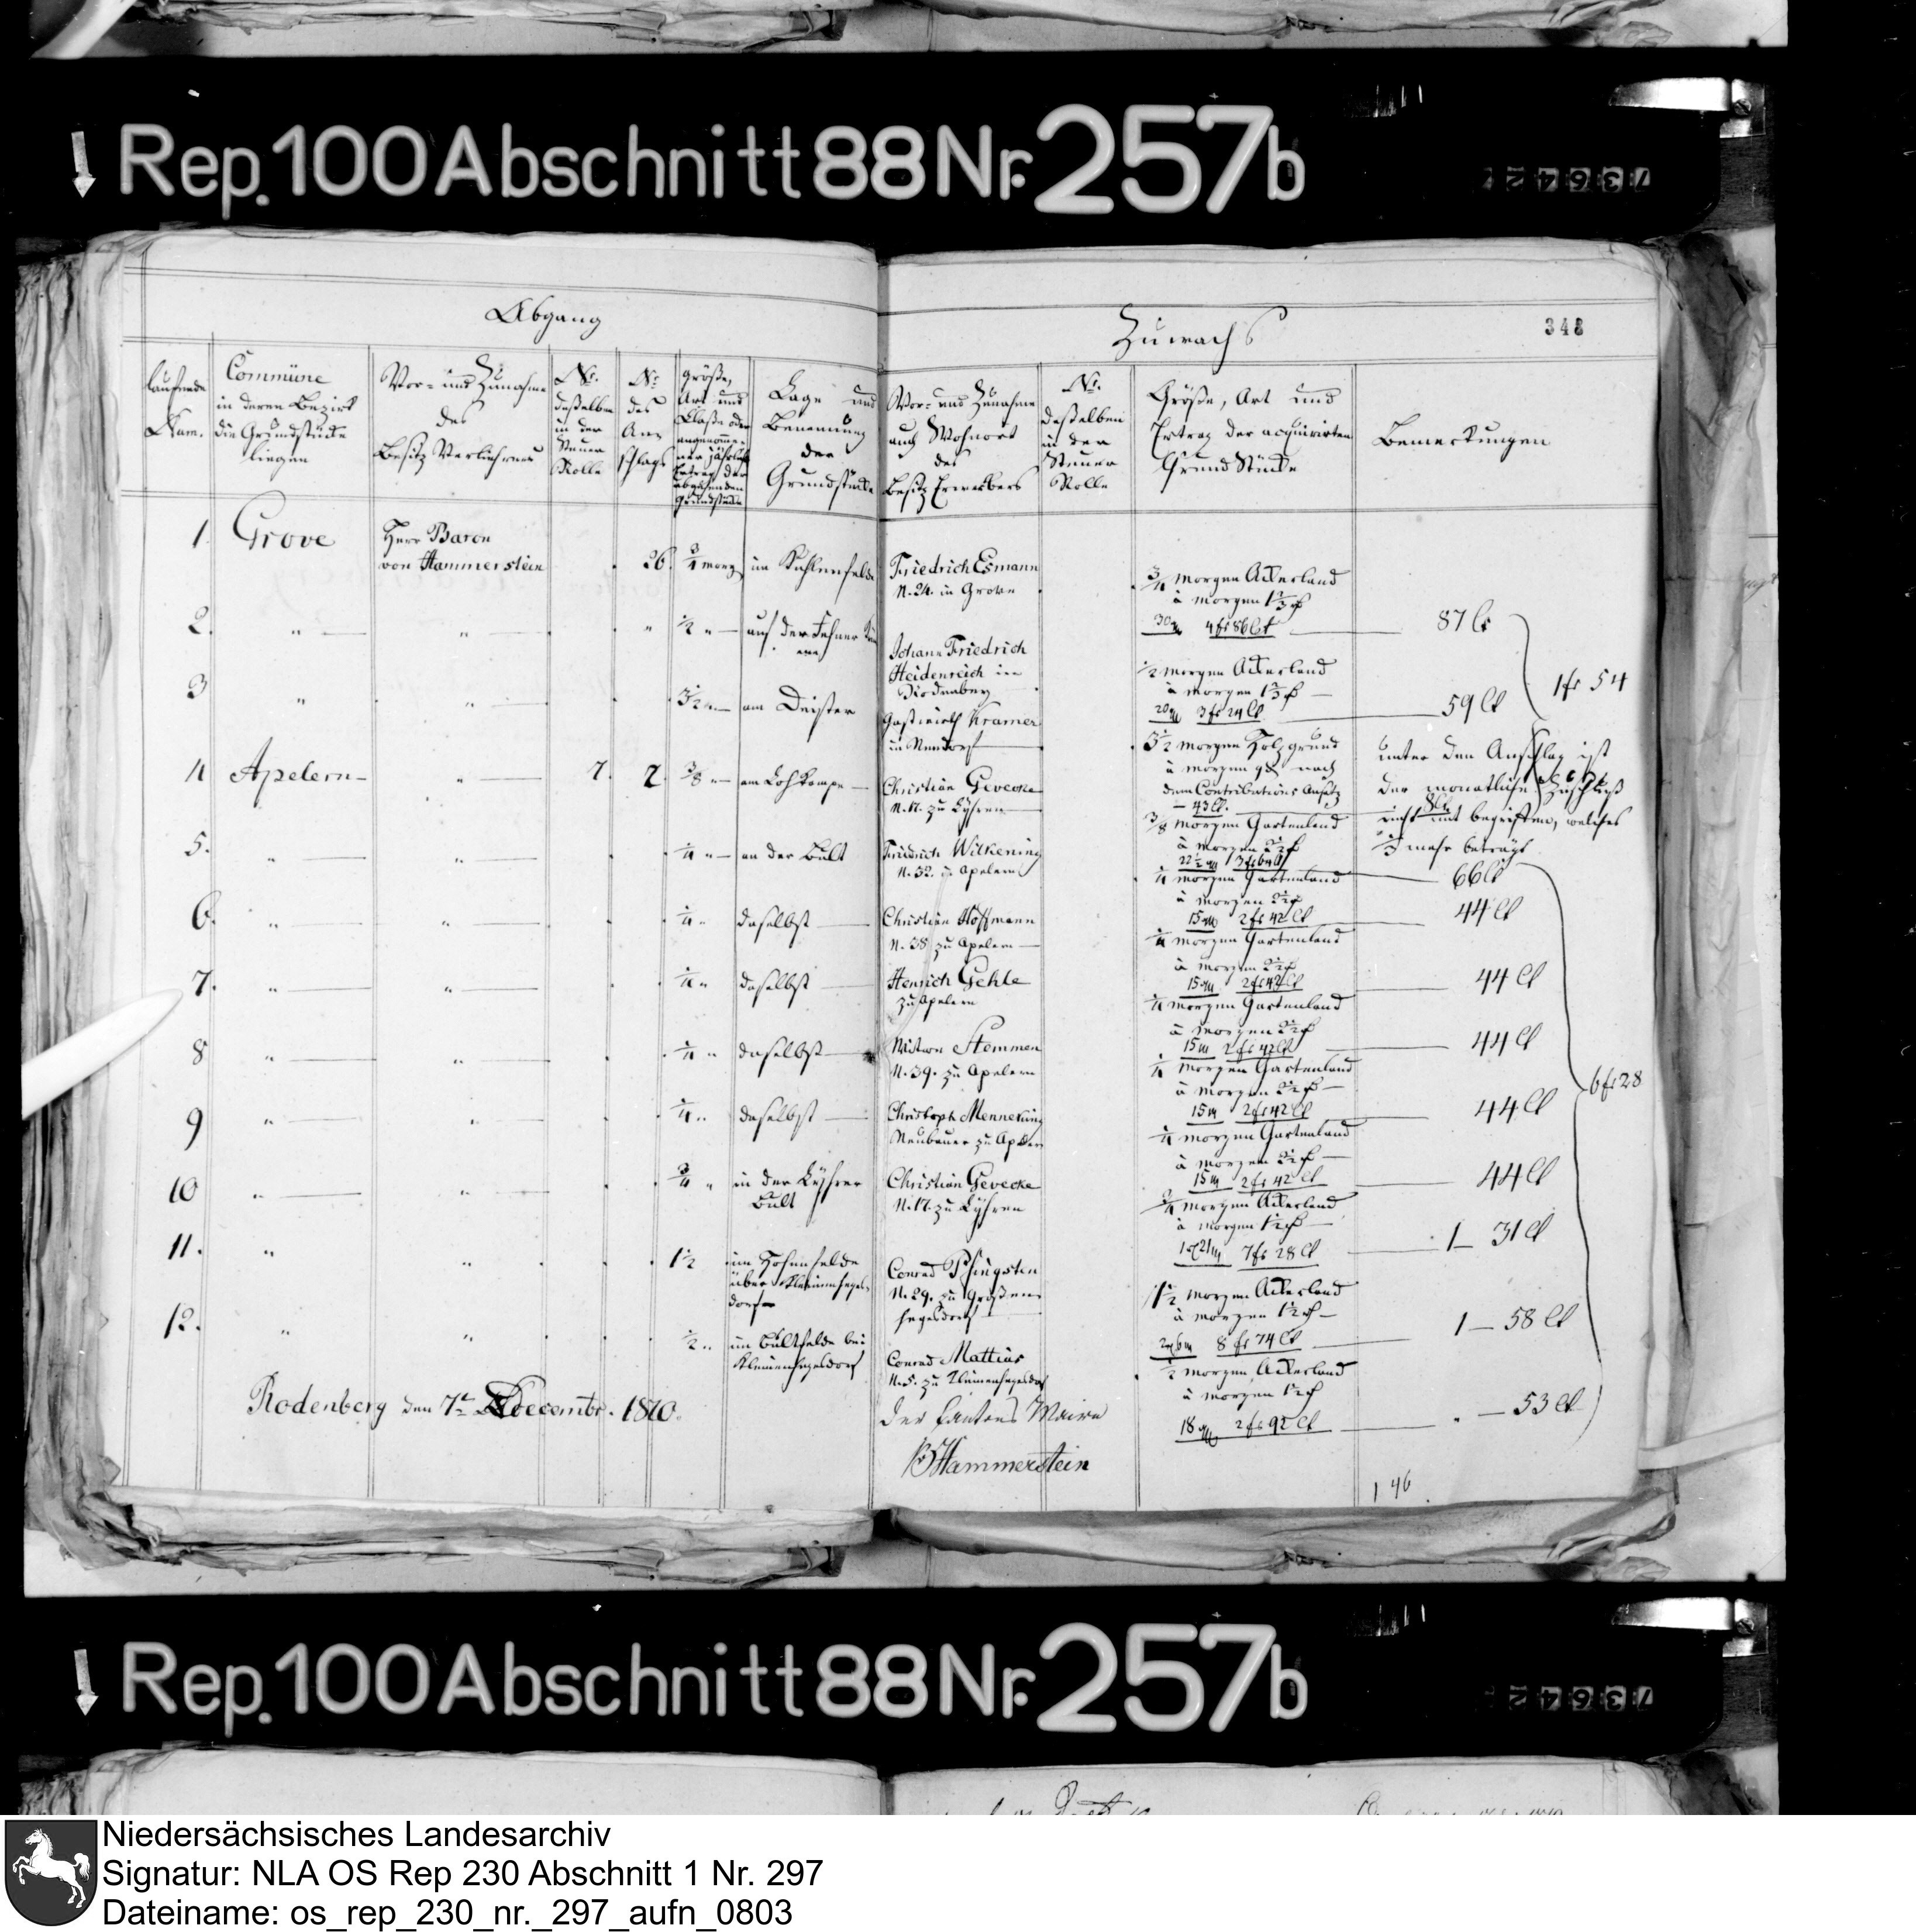 Rep. 100 Abschnitt 88 Nr. 257b
Abgang
Zuwachs
348
laufende
Num.
Commüne
in deren Bezirk
die Grundstücke
liegen
Vor- und Zunahme
des
Besitz Verliehrers
No.
deßelben
in der
Steuer
Rolle
No.
des
An-
schlags
Größe,
Art und
Claße oder
angenomme-
ner jährlich
Ertrag der
abgehenden
Grundstücke
Lage und
Benennung
der
Grundstücke
Vor- und Zunahme
auch Wohnort
des
Besitz Erwerbers
No.
deßelben
in der
Steuer
Rolle
Größe, Art und
Ertrag der acquirirten
Grund Stücke
Bemerkungen
1. Grove Herr Baron
von Hammerstein 26. 3/4 morg im Kuhlenfelde
Friedrich Esmann
N. 24. in Grove
3/4 Morgen Ackerland
à Morgen 1 2/3 rf
4 fr 86 Ct 87 Ct
2. " " " 1/2 " auf der
Johann Friedrich
Heidenreich in
Rodenberg
1/2 Morgen Ackerland
à Morgen 1 2/3 rf
3 fr 24 Ct 59 Ct
1 fr 54
3 " " 3 1/2 " am Deister
Gastwirth Kramer
in Nendorf
3 1/2 Morgen Holzgrund
à Morgen 9 d nach
dem Contributions Ansatz
43 Ct.
unter den Anschlag ist
der monatliche Zuschuß
nicht mit begriffen, welches
1/3 mehr beträgt
4 Apelern " 7. 2 3/8 " am Lohkampe
Christian Gevecke
N. 17. zu Lyhren
3/8 Morgen Gartenland
à Morgen 2 1/2 rf
22 1/2 3 fr 64 Ct 66 Ct
5. " " 1/4 " an der Bult
Friedrich Wilkening
N. 32. zu Apelern
1/4 Morgen Gartenland
à Morgen 2 1/2 rf
15 2 fr 42 Ct 44 Ct
6. " " 1/4 " daselbst
Christian Hoffmann
N. 38 zu Apelern
1/4 Morgen Gartenland
à Morgen 2 1/2 rf
15 2 fr 42 Ct 44 Ct
7. " " 1/4 " daselbst
Henrich Gehle
zu Apelern
1/4 Morgen Gartenland
à Morgen 2 1/2 rf
15 2 fr 42 Ct 44 Ct
8 " " 1/4 " daselbst
Witwe Stemmen
N. 39. zu Apelern
1/4 Morgen Gartenland
à Morgen 2 1/2 rf
15 2 fr 42 Ct 44 Ct
6 fr 28
9 " " 1/4 " daselbst
Christoph Menneking
Neubauer zu Apelern
1/4 Morgen Gartenland
à Morgen 2 1/2 rf
15 2 fr 42 Ct 44 Ct
10 " " 3/4 " in der Lyhrer
Bult
Christian Gevecke
N. 17. zu Lyhren
3/4 Morgen Ackerland
à Morgen 1 1/2 rf
7 fr 28 Ct 1 — 31 Ct
11. " " 1 1/2 im Hohenfelde
über Kleinenheges-
dorf
Conrad Pfingsten
N. 29. zu Großen-
hegesdorf
1 1/2 Morgen Ackerland
à Morgen 1 1/2 rf
8 fr 74 Ct 1 — 58 Ct
12. " " 1/2 " im Bultfelde bei
Kleinenhegesdorf
Conrad Mattias
N. 5. zu Kleinenhegesdorf
1/2 Morgen Ackerland
à Morgen 1 1/2 rf
18 2 fr 92 Ct — 53 Ct
Rodenberg den 7t Decembr. 1810.
Der Cantons Maire
Hammerstein
1 46
Rep. 100 Abschnitt 88 Nr. 257b
Niedersächsisches Landesarchiv
Signatur: NLA OS Rep 230 Abschnitt 1 Nr. 297
Dateiname: os_rep_230_nr._297_aufn_0803